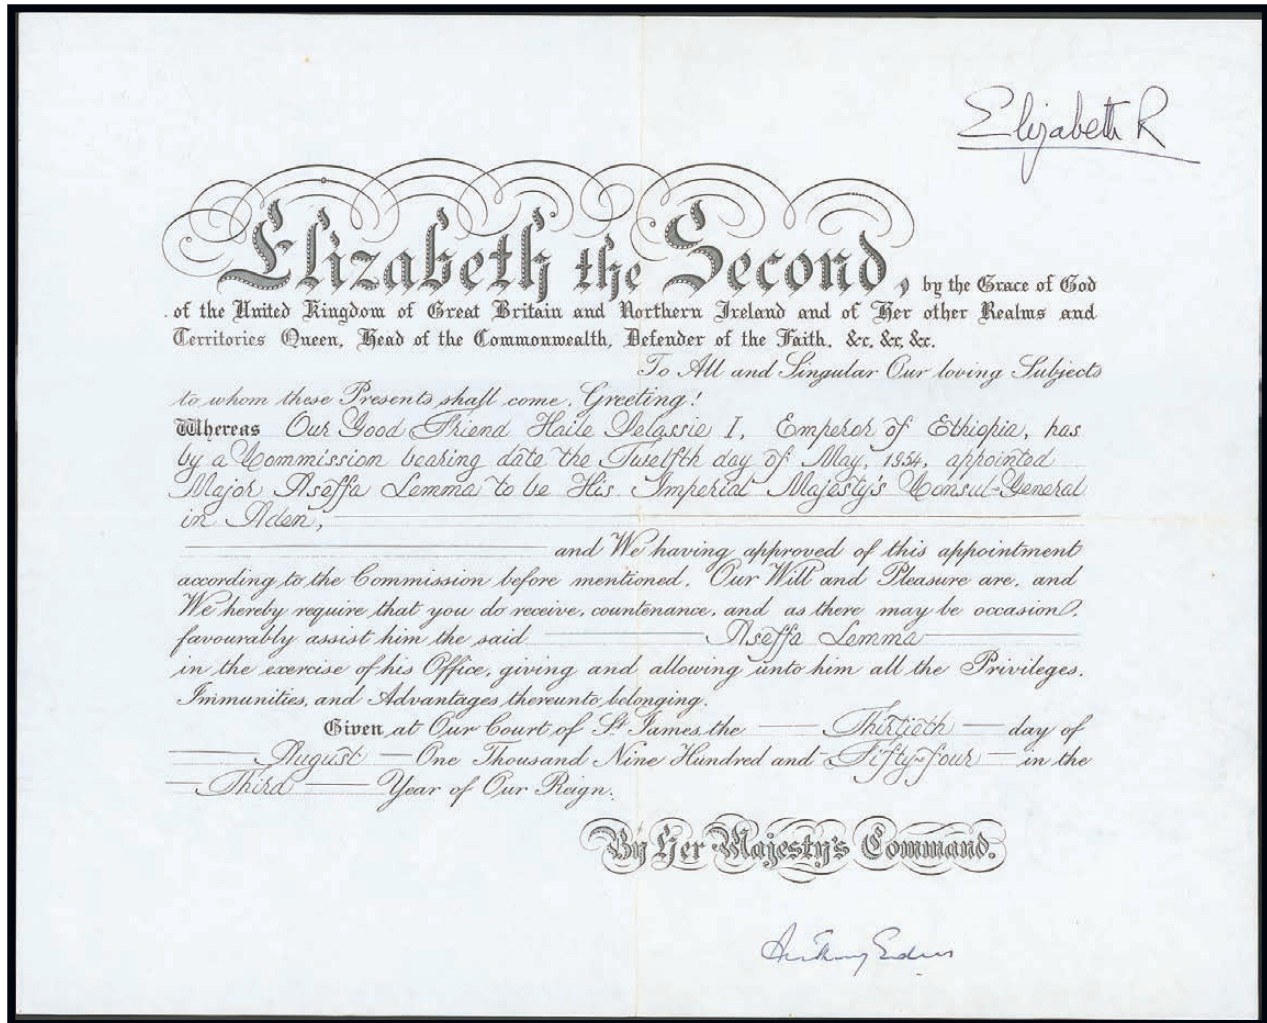 Elizabeth R
Elizabeth the Second, by the Grace of God
of the United Kingdom of Great Britain and Northern Ireland and of Her other Realms and
Territories Queen, Head of the Commonwealth, Defender of the Faith, &c, &c, &c.
To All and Singular Our loving Subjects
to whom these Presents shall come, Greeting!
Whereas Our Good Friend Haile Selassie I, Emperor of Ethiopia, has
by a Commission bearing date the Twelfth day of May, 1954, appointed
Major Aseffa Lemma to be His Imperial Majesty's Consul-General
in Aden,
and We having approved of this appointment
according to the Commission before mentioned, Our Will and Pleasure are, and
We hereby require that you do receive, countenance, and as there may be occasion,
favourably assist him the said Aseffa Lemma
in the exercise of his Office, giving and allowing unto him all the Privileges,
Immunities, and Advantages thereunto belonging.
Given at Our Court of St James, the Thirtieth day of
August One Thousand Nine Hundred and Fifty-four in the
Third Year of Our Reign.
By Her Majesty's Command.
Anthony Eden